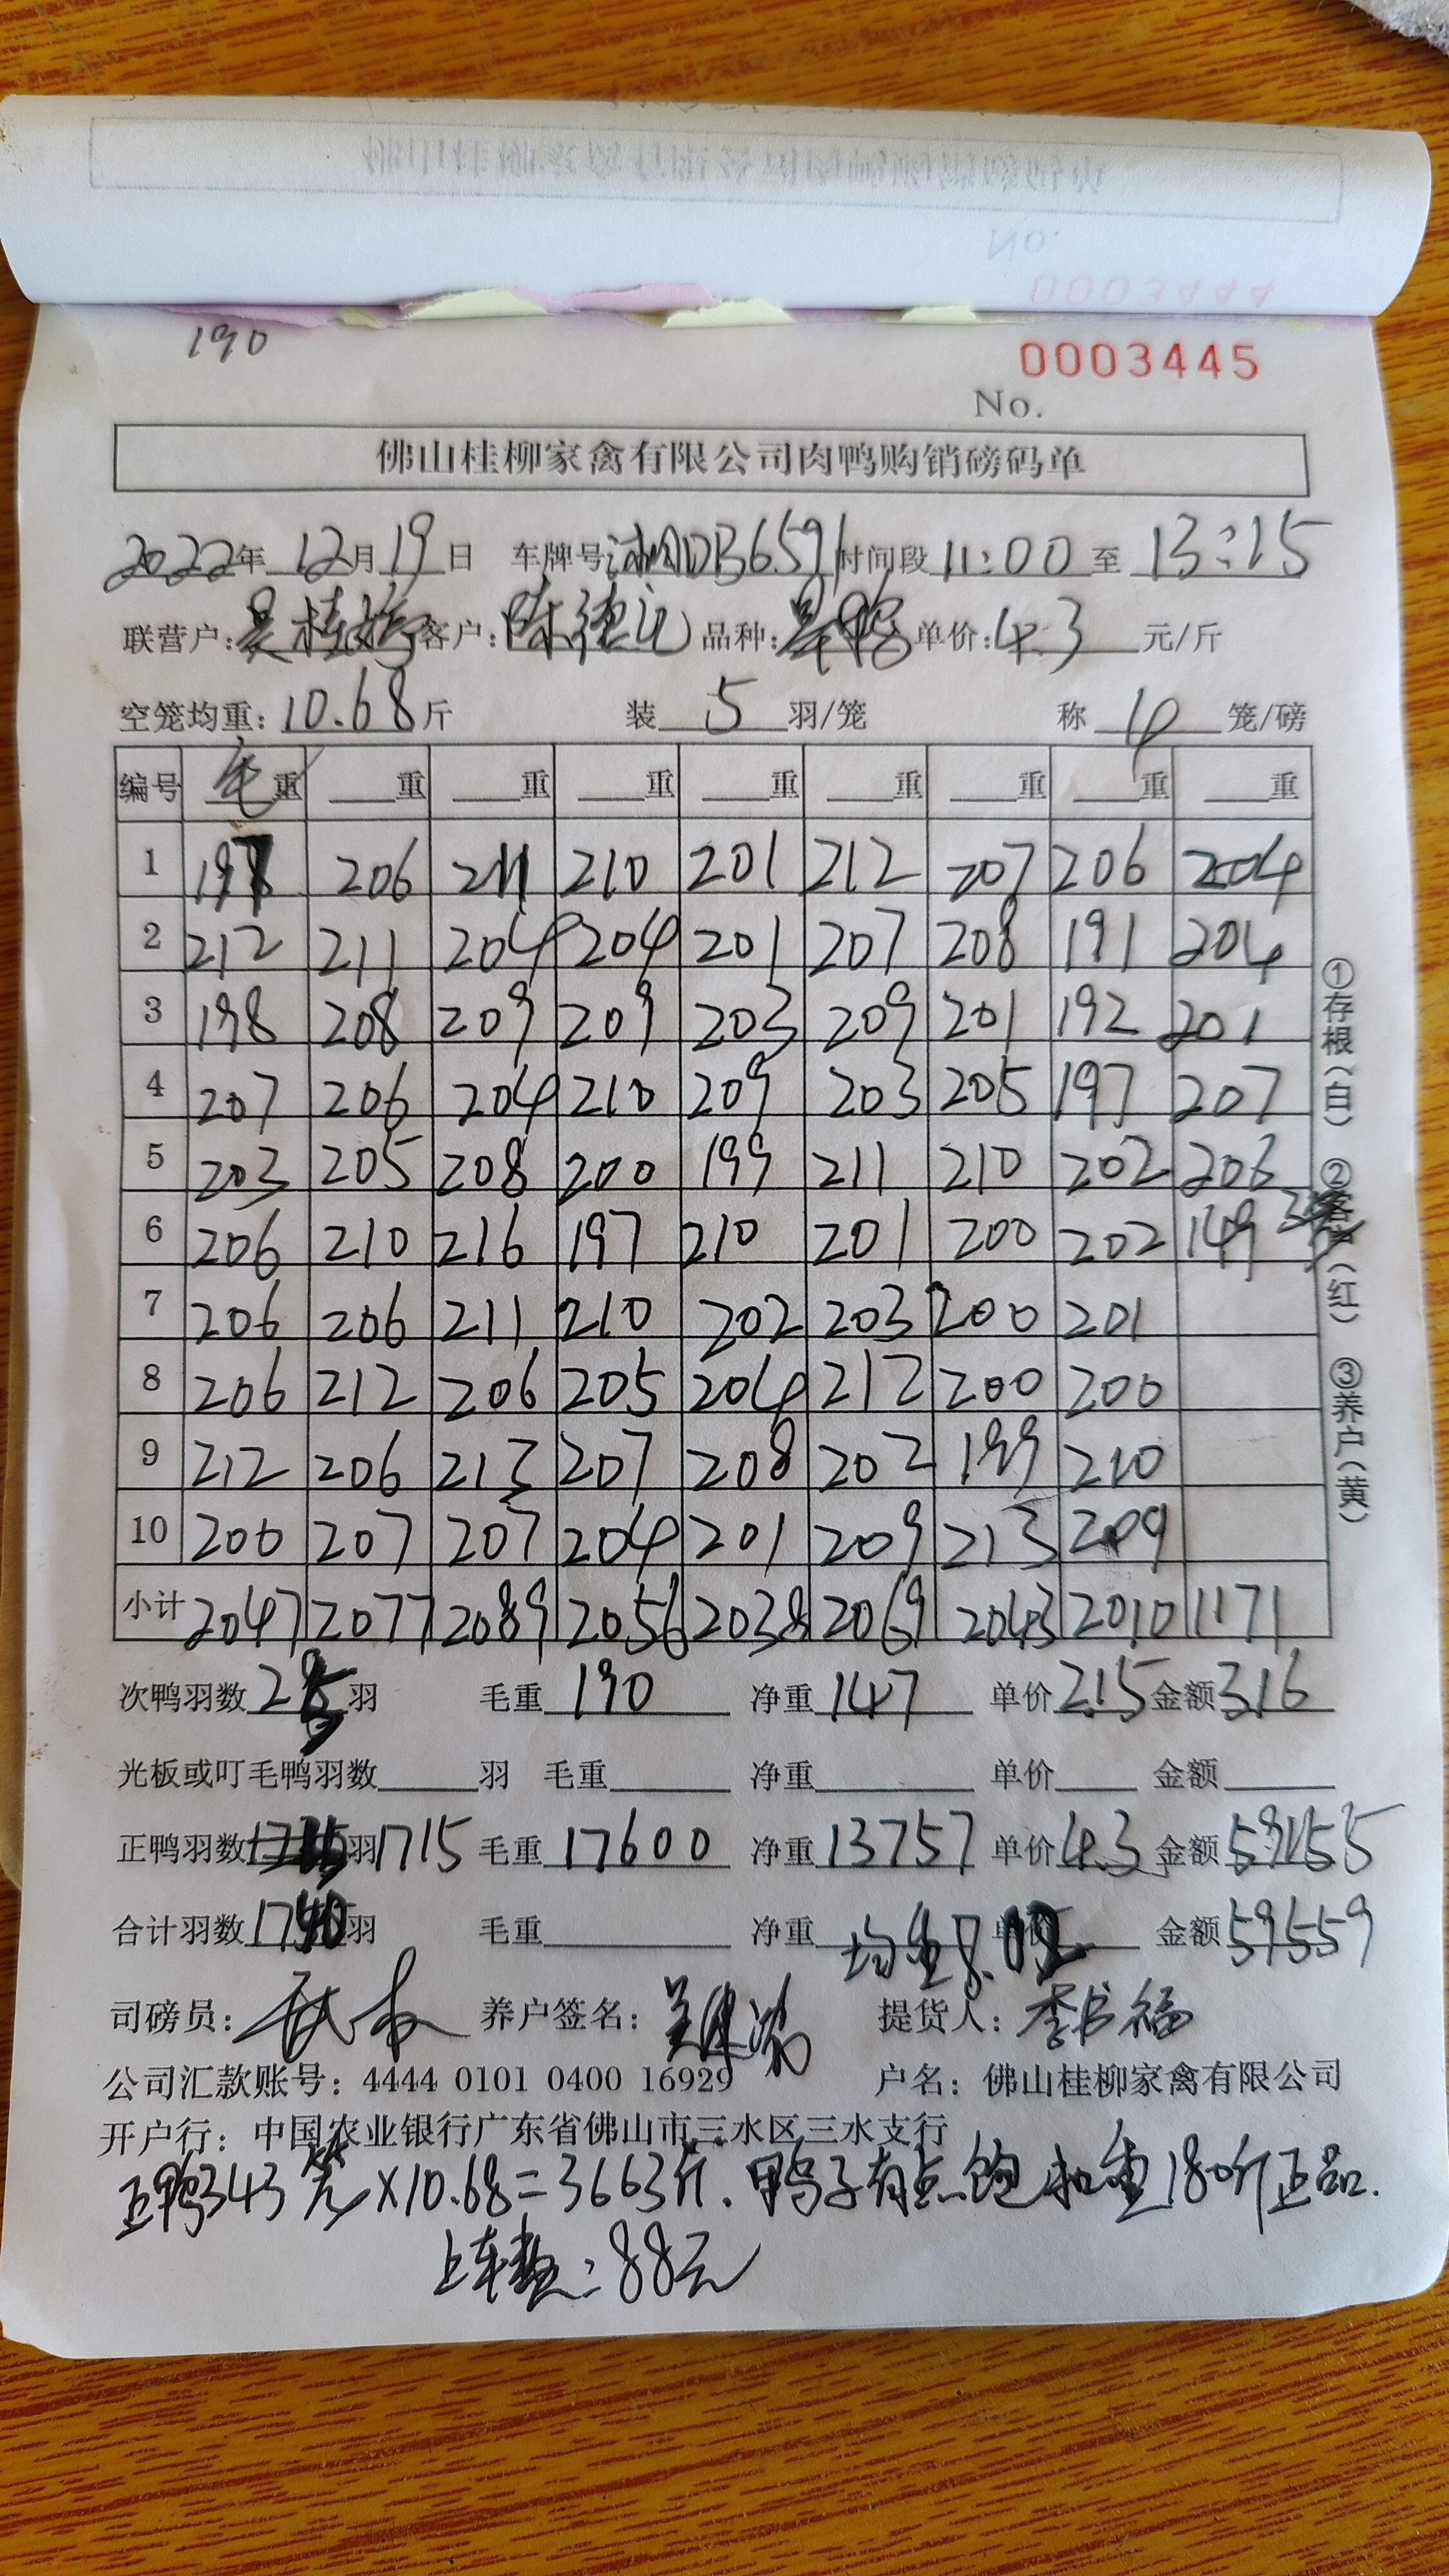 190
0003445
No.
佛山桂柳家禽有限公司肉鸭购销磅码单
2022年 12月 19日 车牌号 DB6591 时间段 11:00 至 13:15
联营户: 吴桂 客户: 陈德 品种: 单价: 4.3 元/斤
空笼均重: 10.68 斤 装 5 羽/笼 称 4 笼/磅
编号 毛重 重 重 重 重 重 重 重 重
1 197 206 211 210 201 212 207 206 204
2 212 211 204 204 201 207 208 191 204
3 198 208 209 209 203 209 201 192 201
4 207 206 204 210 209 203 205 197 207
5 203 205 208 200 199 211 210 202 206
6 206 210 216 197 210 201 200 202 149 3笼
7 206 206 211 210 202 203 200 201
8 206 212 206 205 204 212 200 200
9 212 206 213 207 208 202 199 210
10 200 207 207 204 201 209 213 209
小计 2047 2077 2089 2056 2038 2069 2043 2010 1171
次鸭羽数 25 羽 毛重 190 净重 147 单价 2.15 金额 316
光板或叮毛鸭羽数 羽 毛重 净重 单价 金额
正鸭羽数 羽 1715 毛重 17600 净重 13757 单价 4.3 金额 59155
合计羽数 1740 羽 毛重 净重 均重8.02 金额 59559
司磅员: 养户签名: 提货人: 李书福
公司汇款账号: 4444 0101 0400 16929 户名: 佛山桂柳家禽有限公司
开户行: 中国农业银行广东省佛山市三水区三水支行
正鸭343笼×10.68=3663斤. 鸭子有点饱扣重180斤正品.
上车费: 88元
①存根(白) ②客户(红) ③养户(黄)